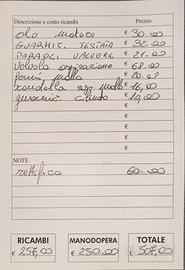 Descrizione e costo ricambi Prezzo
olio motore € 30.00
GUARNIZ. TESTATA € 32.00
PARAOLI VALVOLE € 21.00
Valvola aspirazione € 68.00
molla € 20.00
rondella sopp molla € 16,00
€ 19,00
€
€
€
NOTE
rettifica 60.00
RICAMBI MANODOPERA TOTALE
€ 258,00 € 250.00 € 508,00